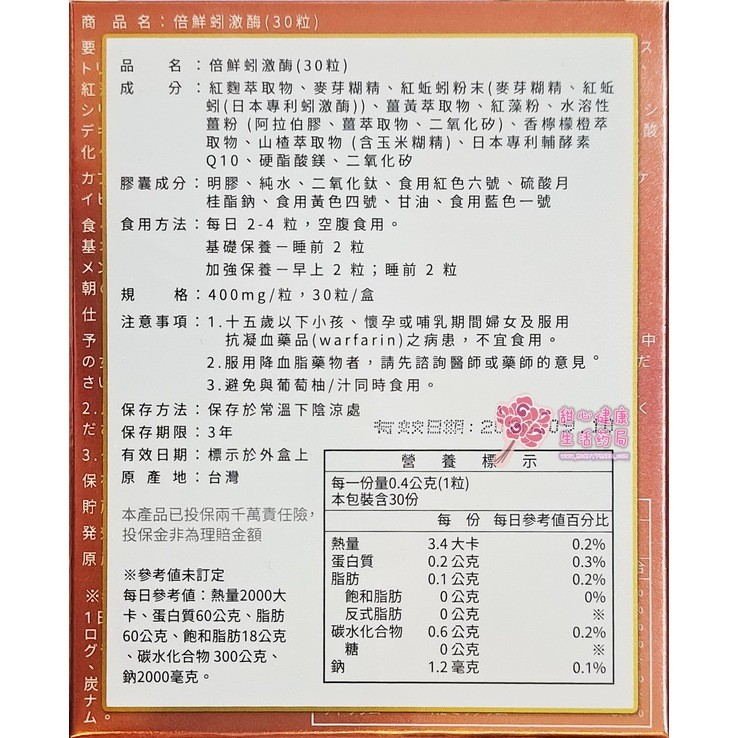 商品名：倍鮮蚓激酶(30粒)
品名：倍鮮蚓激酶(30粒)
成分：紅麴萃取物、麥芽糊精、紅蚯蚓粉末(麥芽糊精、紅蚯
蚓(日本專利蚓激酶))、薑黃萃取物、紅藻粉、水溶性
薑粉 (阿拉伯膠、薑萃取物、二氧化矽)、香檸檬橙萃
取物、山楂萃取物 (含玉米糊精)、日本專利輔酵素
Q10、硬酯酸鎂、二氧化矽
膠囊成分：明膠、純水、二氧化鈦、食用紅色六號、硫酸月
桂酯鈉、食用黃色四號、甘油、食用藍色一號
食用方法：每日 2-4 粒，空腹食用。
基礎保養－睡前 2 粒
加強保養－早上 2 粒；睡前 2 粒
規格：400mg/粒，30粒/盒
注意事項：1.十五歲以下小孩、懷孕或哺乳期間婦女及服用
抗凝血藥品(warfarin)之病患，不宜食用。
2.服用降血脂藥物者，請先諮詢醫師或藥師的意見。
3.避免與葡萄柚/汁同時食用。
保存方法：保存於常溫下陰涼處
保存期限：3年
有效日期：標示於外盒上
原產地：台灣
有效日期：20
甜心健康
生活藥局
本產品已投保兩千萬責任險，
投保金非為理賠金額
※參考值未訂定
每日參考值：熱量2000大
卡、蛋白質60公克、脂肪
60公克、飽和脂肪18公克
、碳水化合物 300公克、
鈉2000毫克。
營養標示
每一份量0.4公克(1粒)
本包裝含30份
每份 每日參考值百分比
熱量 3.4 大卡 0.2%
蛋白質 0.2 公克 0.3%
脂肪 0.1 公克 0.2%
飽和脂肪 0 公克 0%
反式脂肪 0 公克 ※
碳水化合物 0.6 公克 0.2%
糖 0 公克 ※
鈉 1.2 毫克 0.1%